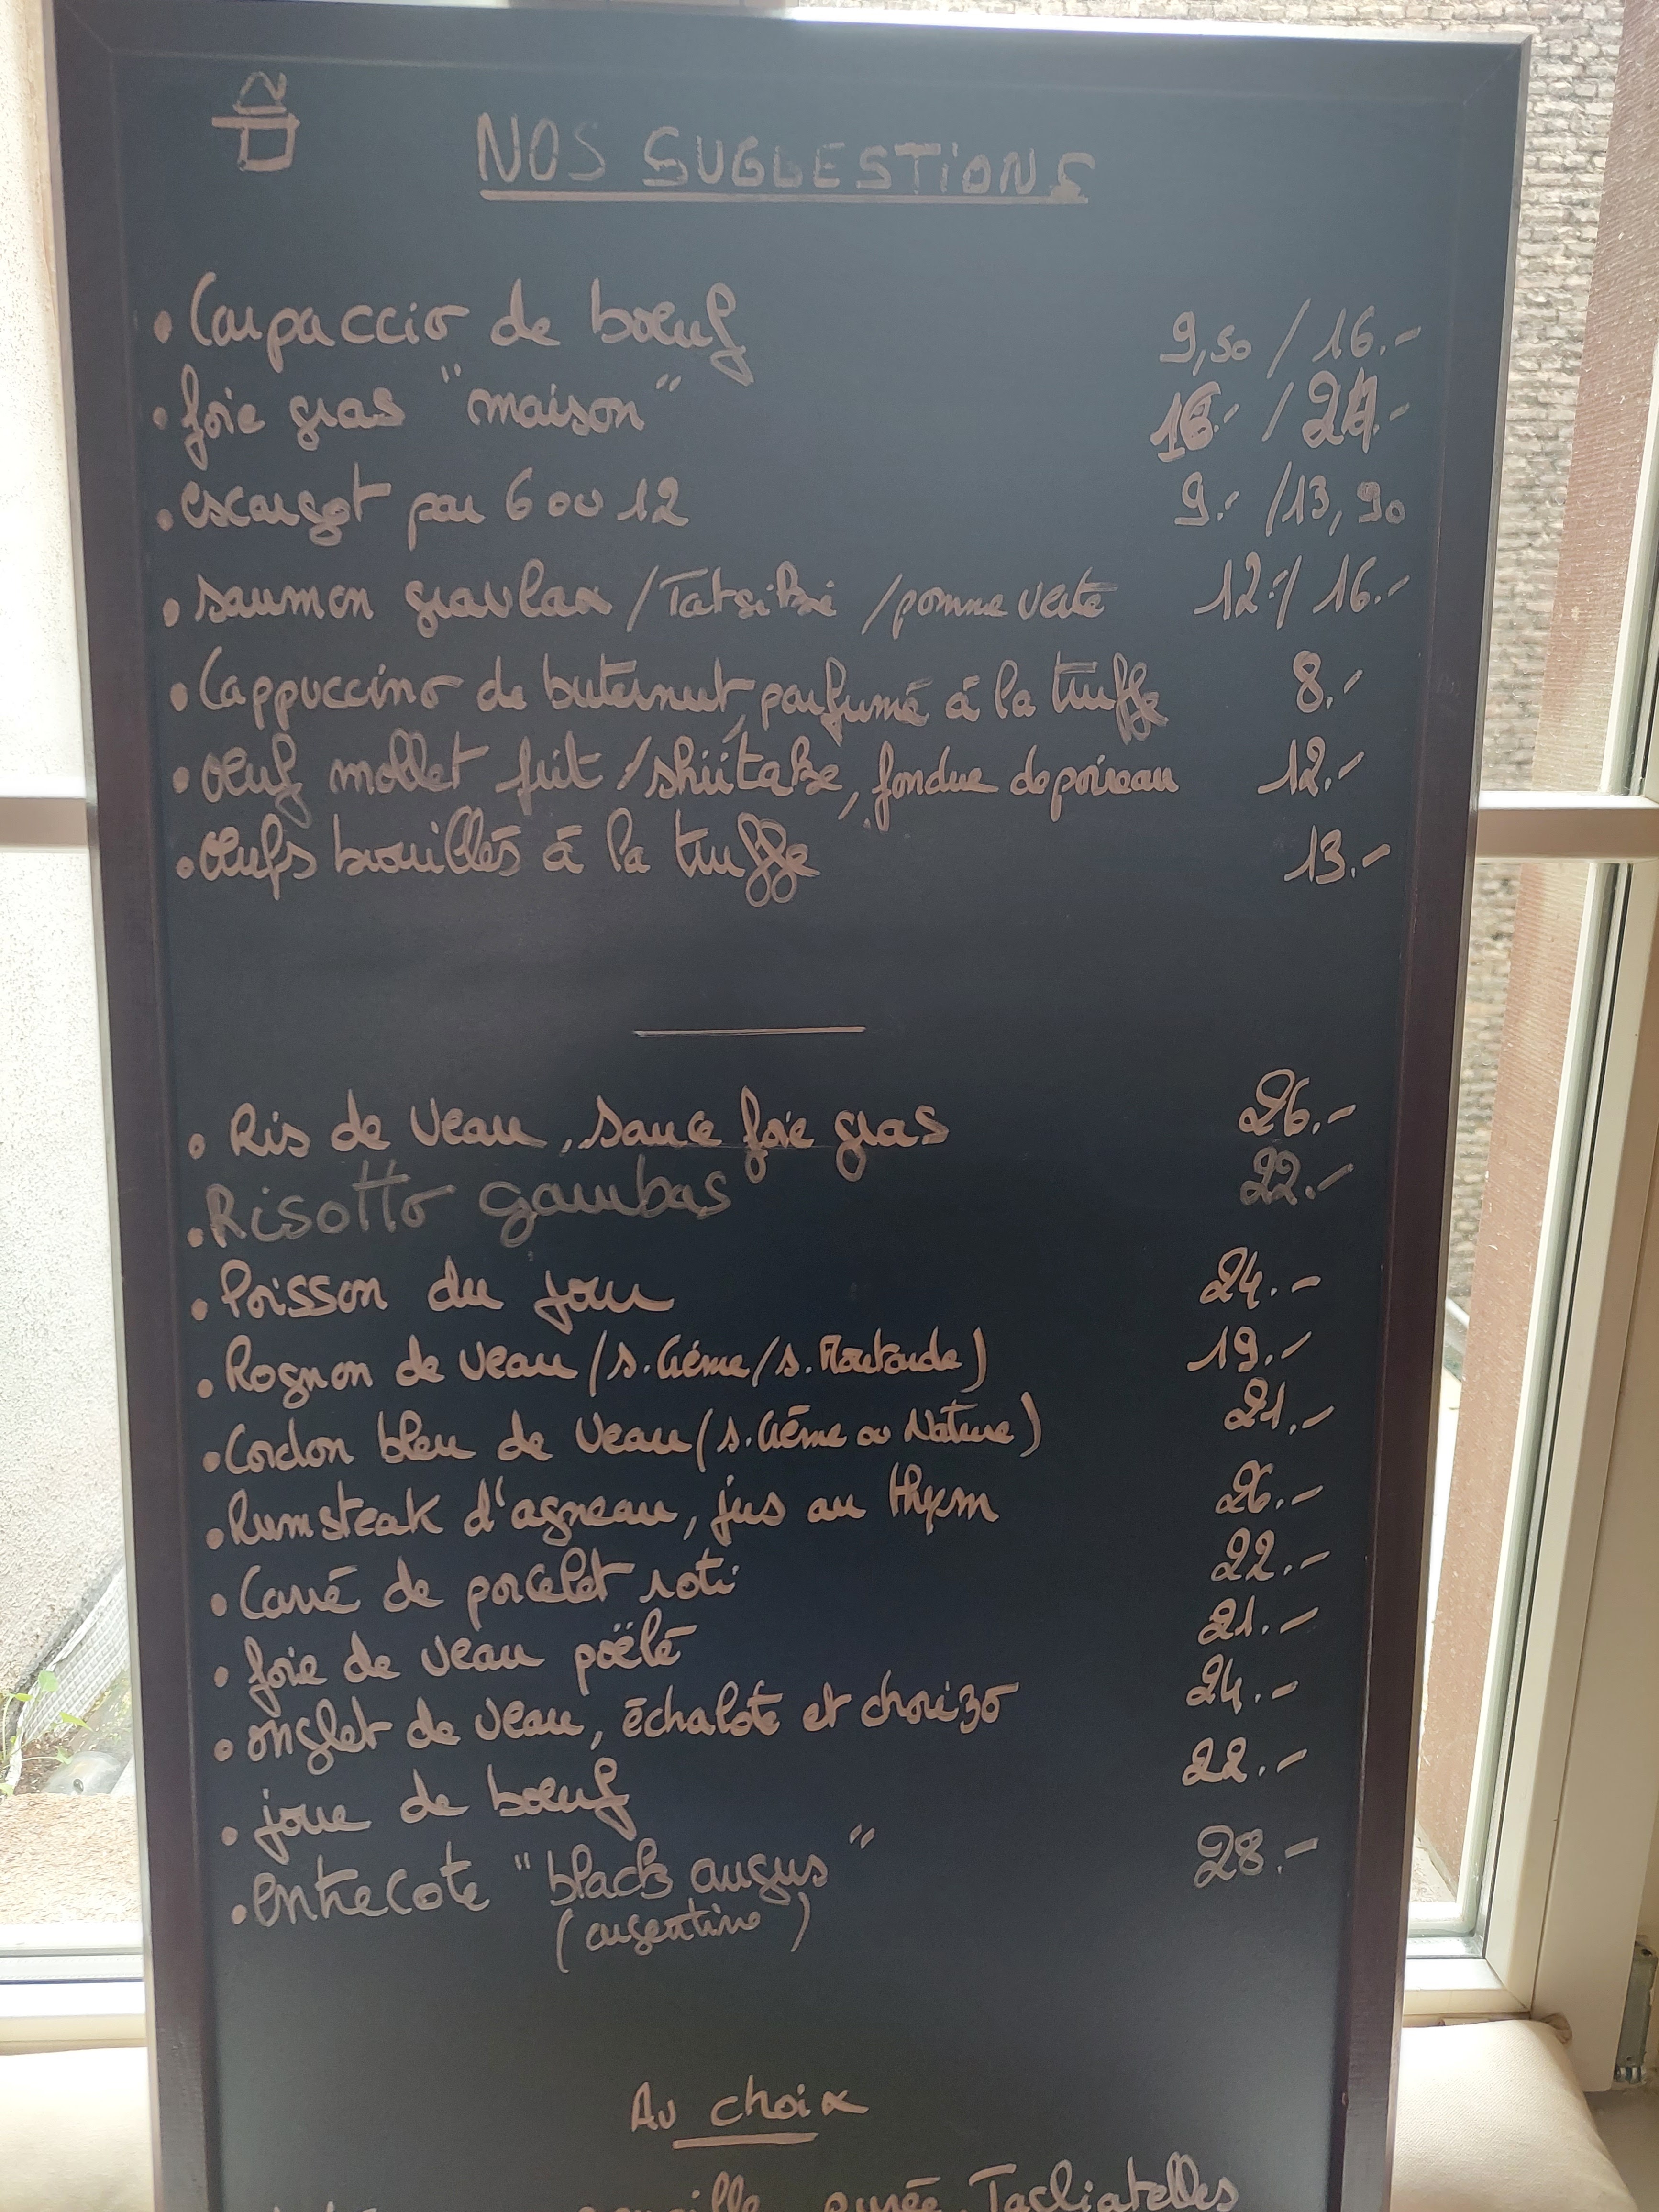 NOS SUGGESTIONS
• Carpaccio de bœuf 9,50 / 16.-
• foie gras "maison" 16.- / 24.-
• escargot par 6 ou 12 9.- / 13,90
• saumon gravlax / Tatsiki / pomme verte 12.- / 16.-
• Cappuccino de buternut, parfumé à la truffe 8.-
• Oeuf mollet frit / shiitake, fondue de poireau 12.-
• Oeufs brouillés à la truffe 13.-
• Ris de veau, sauce foie gras 26.-
• Risotto gambas 22.-
• Poisson du jour 24.-
• Rognon de veau (s. Crème / s. Moutarde) 19.-
• Cordon bleu de veau (s. Crème ou Nature) 21.-
• Rumsteak d'agneau, jus au thym 26.-
• Carré de porcelet roti 22.-
• foie de veau poëlé 21.-
• onglet de veau, échalote et chorizo 24.-
• joue de bœuf 22.-
• entrecote "black angus" 28.-
(argentine)
Au choix
purée, Tagliatelles